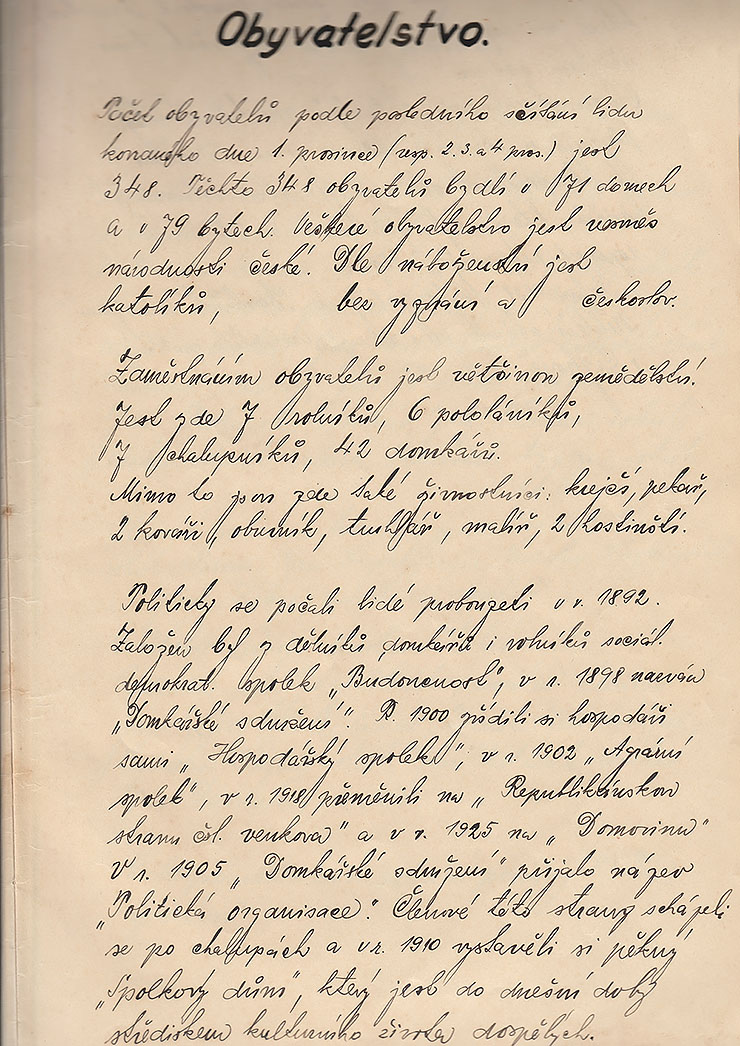 Obyvatelstvo.
Počet obyvatelů podle posledního sčítání lidu
konaného dne 1. prosince (resp. 2. 3. a 4 pros.) jest
348. Těchto 348 obyvatelů bydlí v 71 domech
a v 79 bytech. Veškeré obyvatelstvo jest vesměs
národnosti české. Dle náboženství jest
katolíků, bez vyznání a českoslov.
Zaměstnáním obyvatelů jest většinou zemědělství.
Jest zde 7 rolníků, 6 pololáníků,
7 chalupníků, 42 domkářů.
Mimo to jsou zde také živnostníci: krejčí, pekař,
2 kováři, obuvník, truhlář, malíř, 2 hostinští.
Politicky se počali lidé probouzeti v r. 1892.
Založen byl z dělníků, domkářů i rolníků sociál.
demokrat. spolek „Budoucnost", v r. 1898 nazván
„Domkářské sdružení". R. 1900 zřídili si hospodáři
sami „Hospodářský spolek", v r. 1902 „Agrární
spolek", v r. 1918 přeměnili na „Republikánskou
stranu čsl. venkova" a v r. 1925 na „Domovinu"
V r. 1905 „Domkářské sdružení" přijalo název
„Politická organisace". Členové této strany scházeli
se po chalupách a v r. 1910 vystavěli si pěkný
„Spolkový dům", který jest do dnešní doby
střediskem kulturního života dospělých.